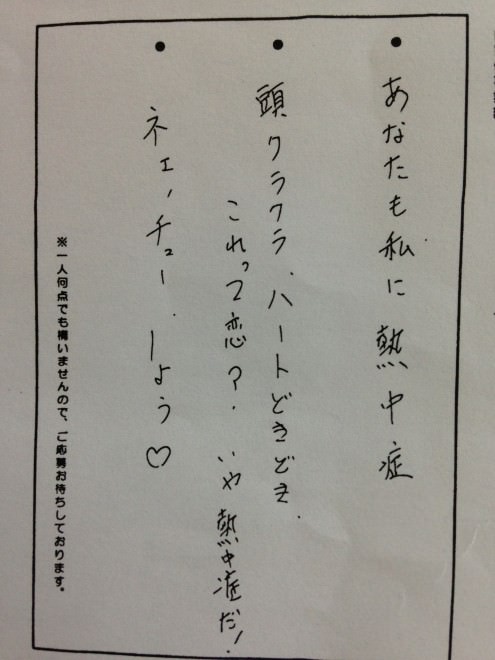 ● あなたも私に熱中症
● 頭クラクラ、ハートどきどき、
これって恋?、いや熱中症だ!
● ネェ、チュー、しよう♡
※一人何点でも構いませんので、ご応募お待ちしております。